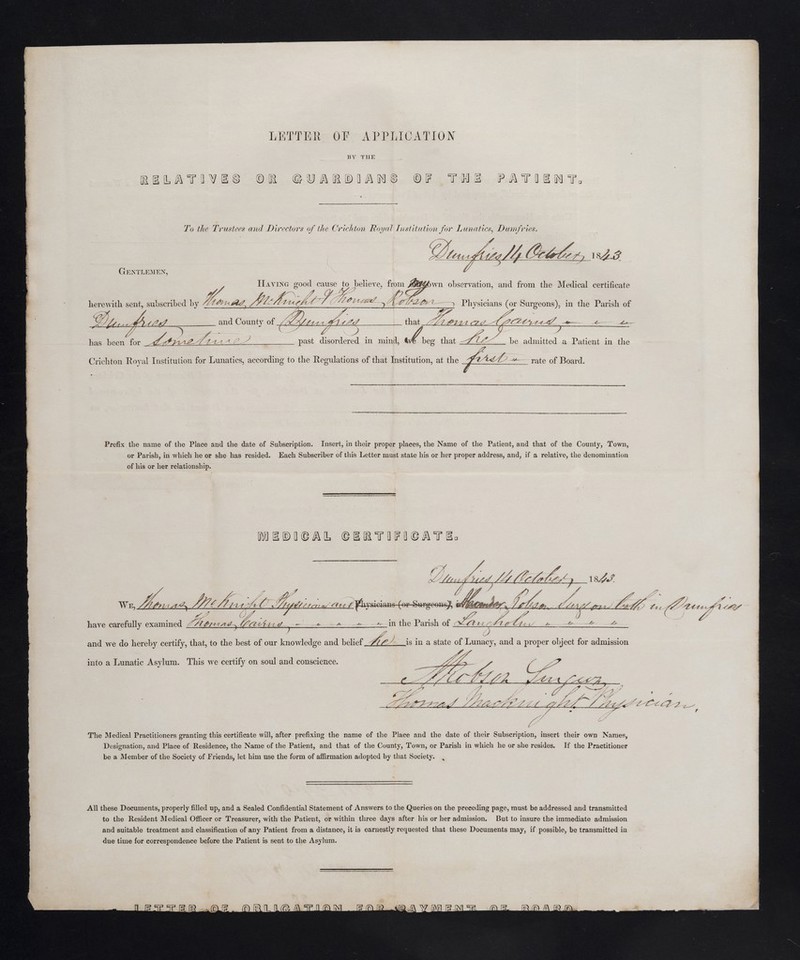 LETTER OF APPLICATION
BY THE
RELATIVES OR GUARDIANS OF THE PATIENT.
To the Trustees and Directors of the Crichton Royal Institution for Lunatics, Dumfries.
Dumfries 14 October, 1843.
GENTLEMEN,
HAVING good cause to believe, from my own observation, and from the Medical certificate
herewith sent, subscribed by Thomas McKnight & Thomas Robson Physicians (or Surgeons), in the Parish of
Dumfries and County of Dumfries that Thomas Cairns
has been for Sometime past disordered in mind, we beg that he be admitted a Patient in the
Crichton Royal Institution for Lunatics, according to the Regulations of that Institution, at the first rate of Board.
Prefix the name of the Place and the date of Subscription. Insert, in their proper places, the Name of the Patient, and that of the County, Town,
or Parish, in which he or she has resided. Each Subscriber of this Letter must state his or her proper address, and, if a relative, the denomination
of his or her relationship.
MEDICAL CERTIFICATE.
Dumfries, 14 October, 1843.
WE, Thomas McKnight Physician and Physicians (or Surgeons), Robson Surgeon both in Dumfries
have carefully examined Thomas Cairns in the Parish of Langholm
and we do hereby certify, that, to the best of our knowledge and belief he is in a state of Lunacy, and a proper object for admission
into a Lunatic Asylum. This we certify on soul and conscience.
Robson Surgeon
Thomas Macknight Physician.
The Medical Practitioners granting this certificate will, after prefixing the name of the Place and the date of their Subscription, insert their own Names,
Designation, and Place of Residence, the Name of the Patient, and that of the County, Town, or Parish in which he or she resides. If the Practitioner
be a Member of the Society of Friends, let him use the form of affirmation adopted by that Society.
All these Documents, properly filled up, and a Sealed Confidential Statement of Answers to the Queries on the preceding page, must be addressed and transmitted
to the Resident Medical Officer or Treasurer, with the Patient, or within three days after his or her admission. But to insure the immediate admission
and suitable treatment and classification of any Patient from a distance, it is earnestly requested that these Documents may, if possible, be transmitted in
due time for correspondence before the Patient is sent to the Asylum.
LETTER OF OBLIGATION FOR PAYMENT OF BOARD.